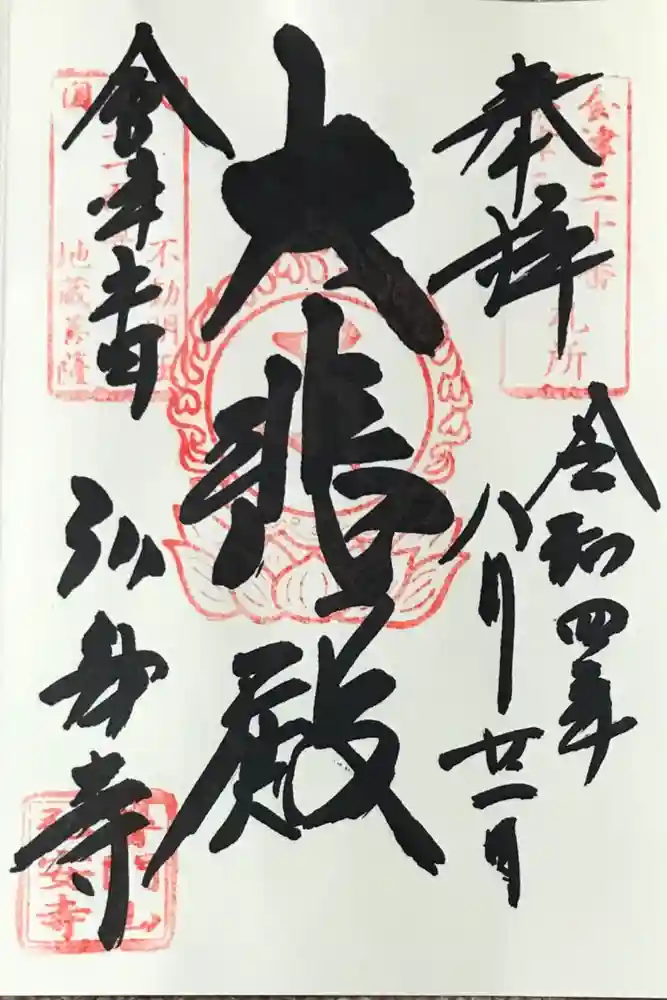 奉拝
令和四年
八月廿一日
大悲殿
會津
弘安寺
会津三十番
札所
不動明王
地蔵菩薩
普門山
弘安寺